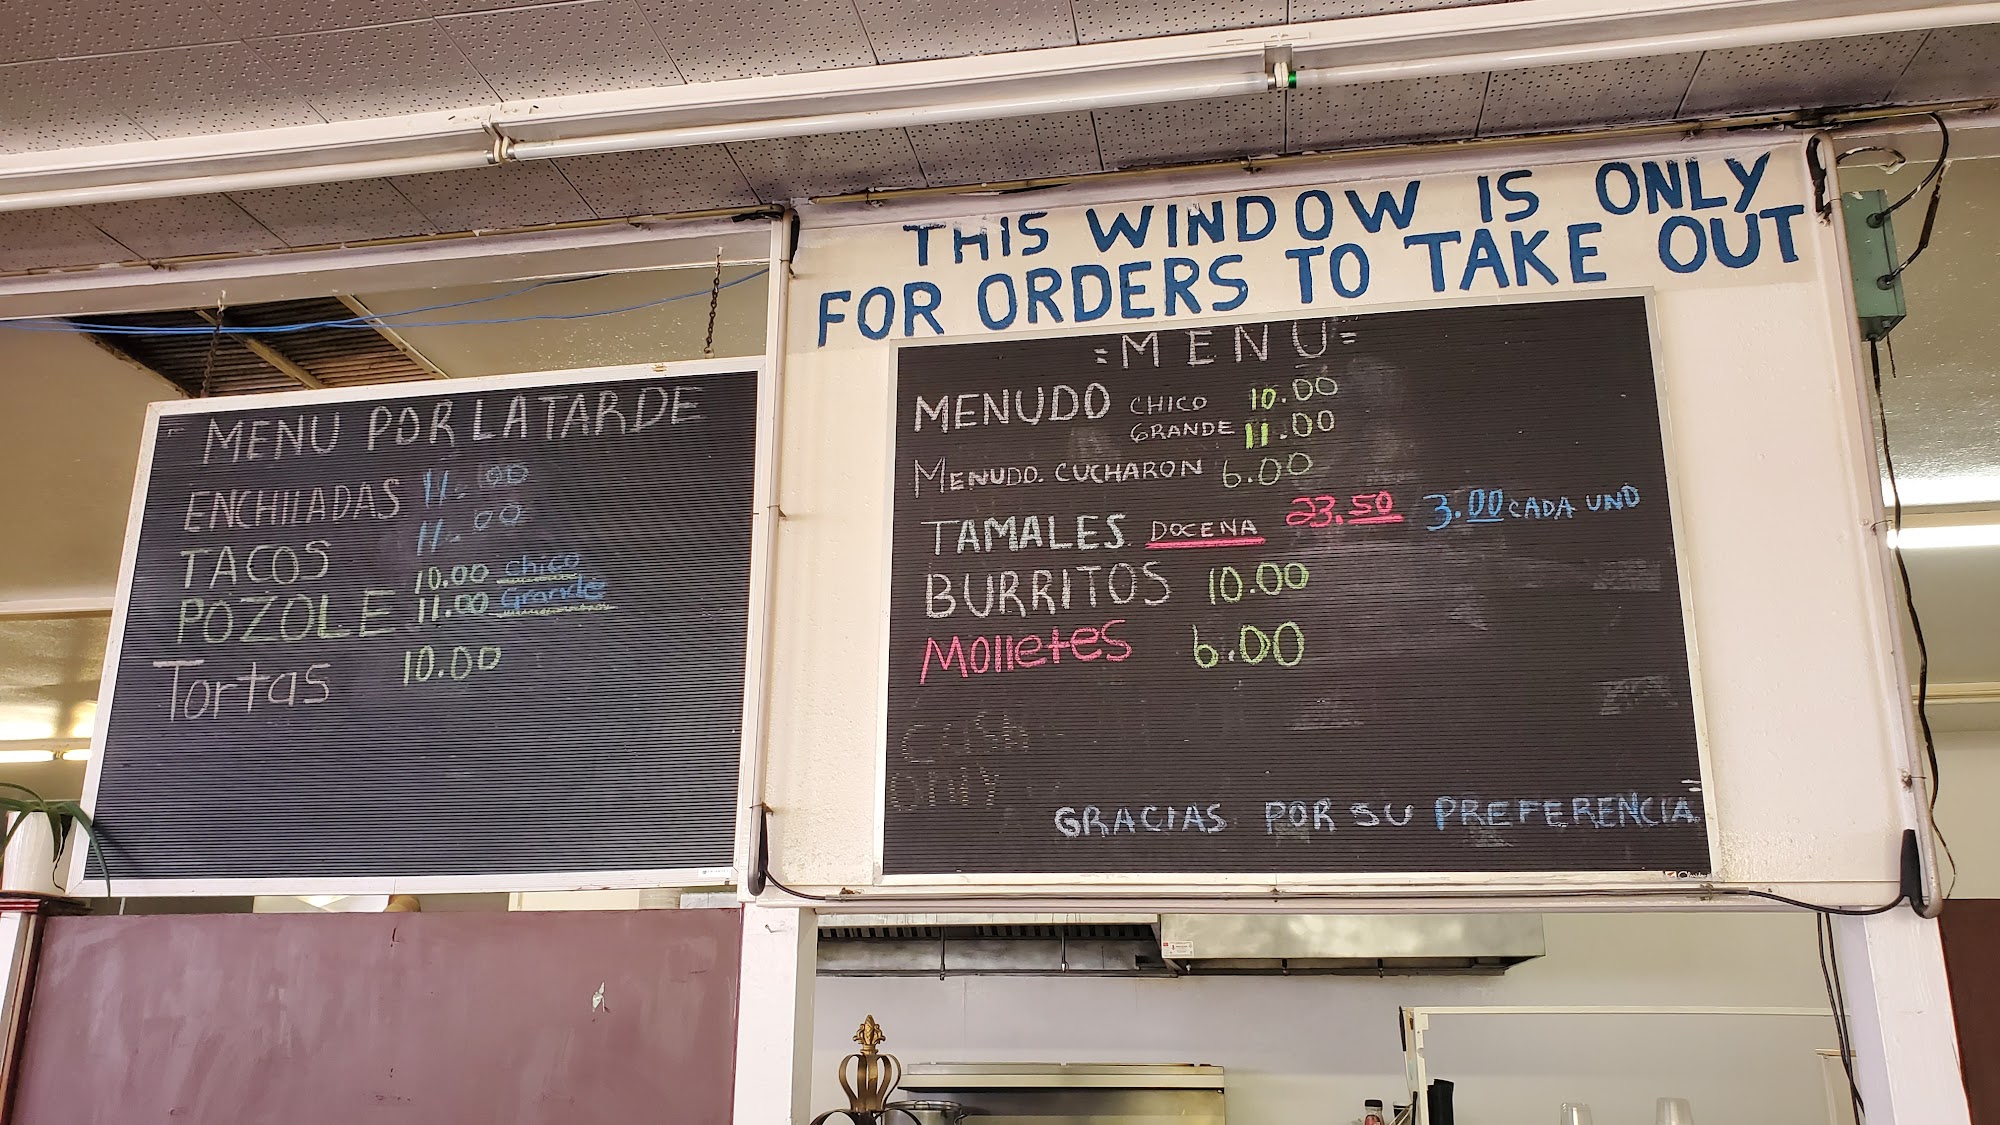 THIS WINDOW IS ONLY
FOR ORDERS TO TAKE OUT
MENU POR LA TARDE
ENCHILADAS 11.00
TACOS 11.00
POZOLE 10.00 chico
11.00 Grande
Tortas 10.00
=MENU=
MENUDO CHICO 10.00
GRANDE 11.00
MENUDO. CUCHARON 6.00
TAMALES DOCENA 23.50 3.00 CADA UNO
BURRITOS 10.00
Molletes 6.00
CASH
ONLY
GRACIAS POR SU PREFERENCIA